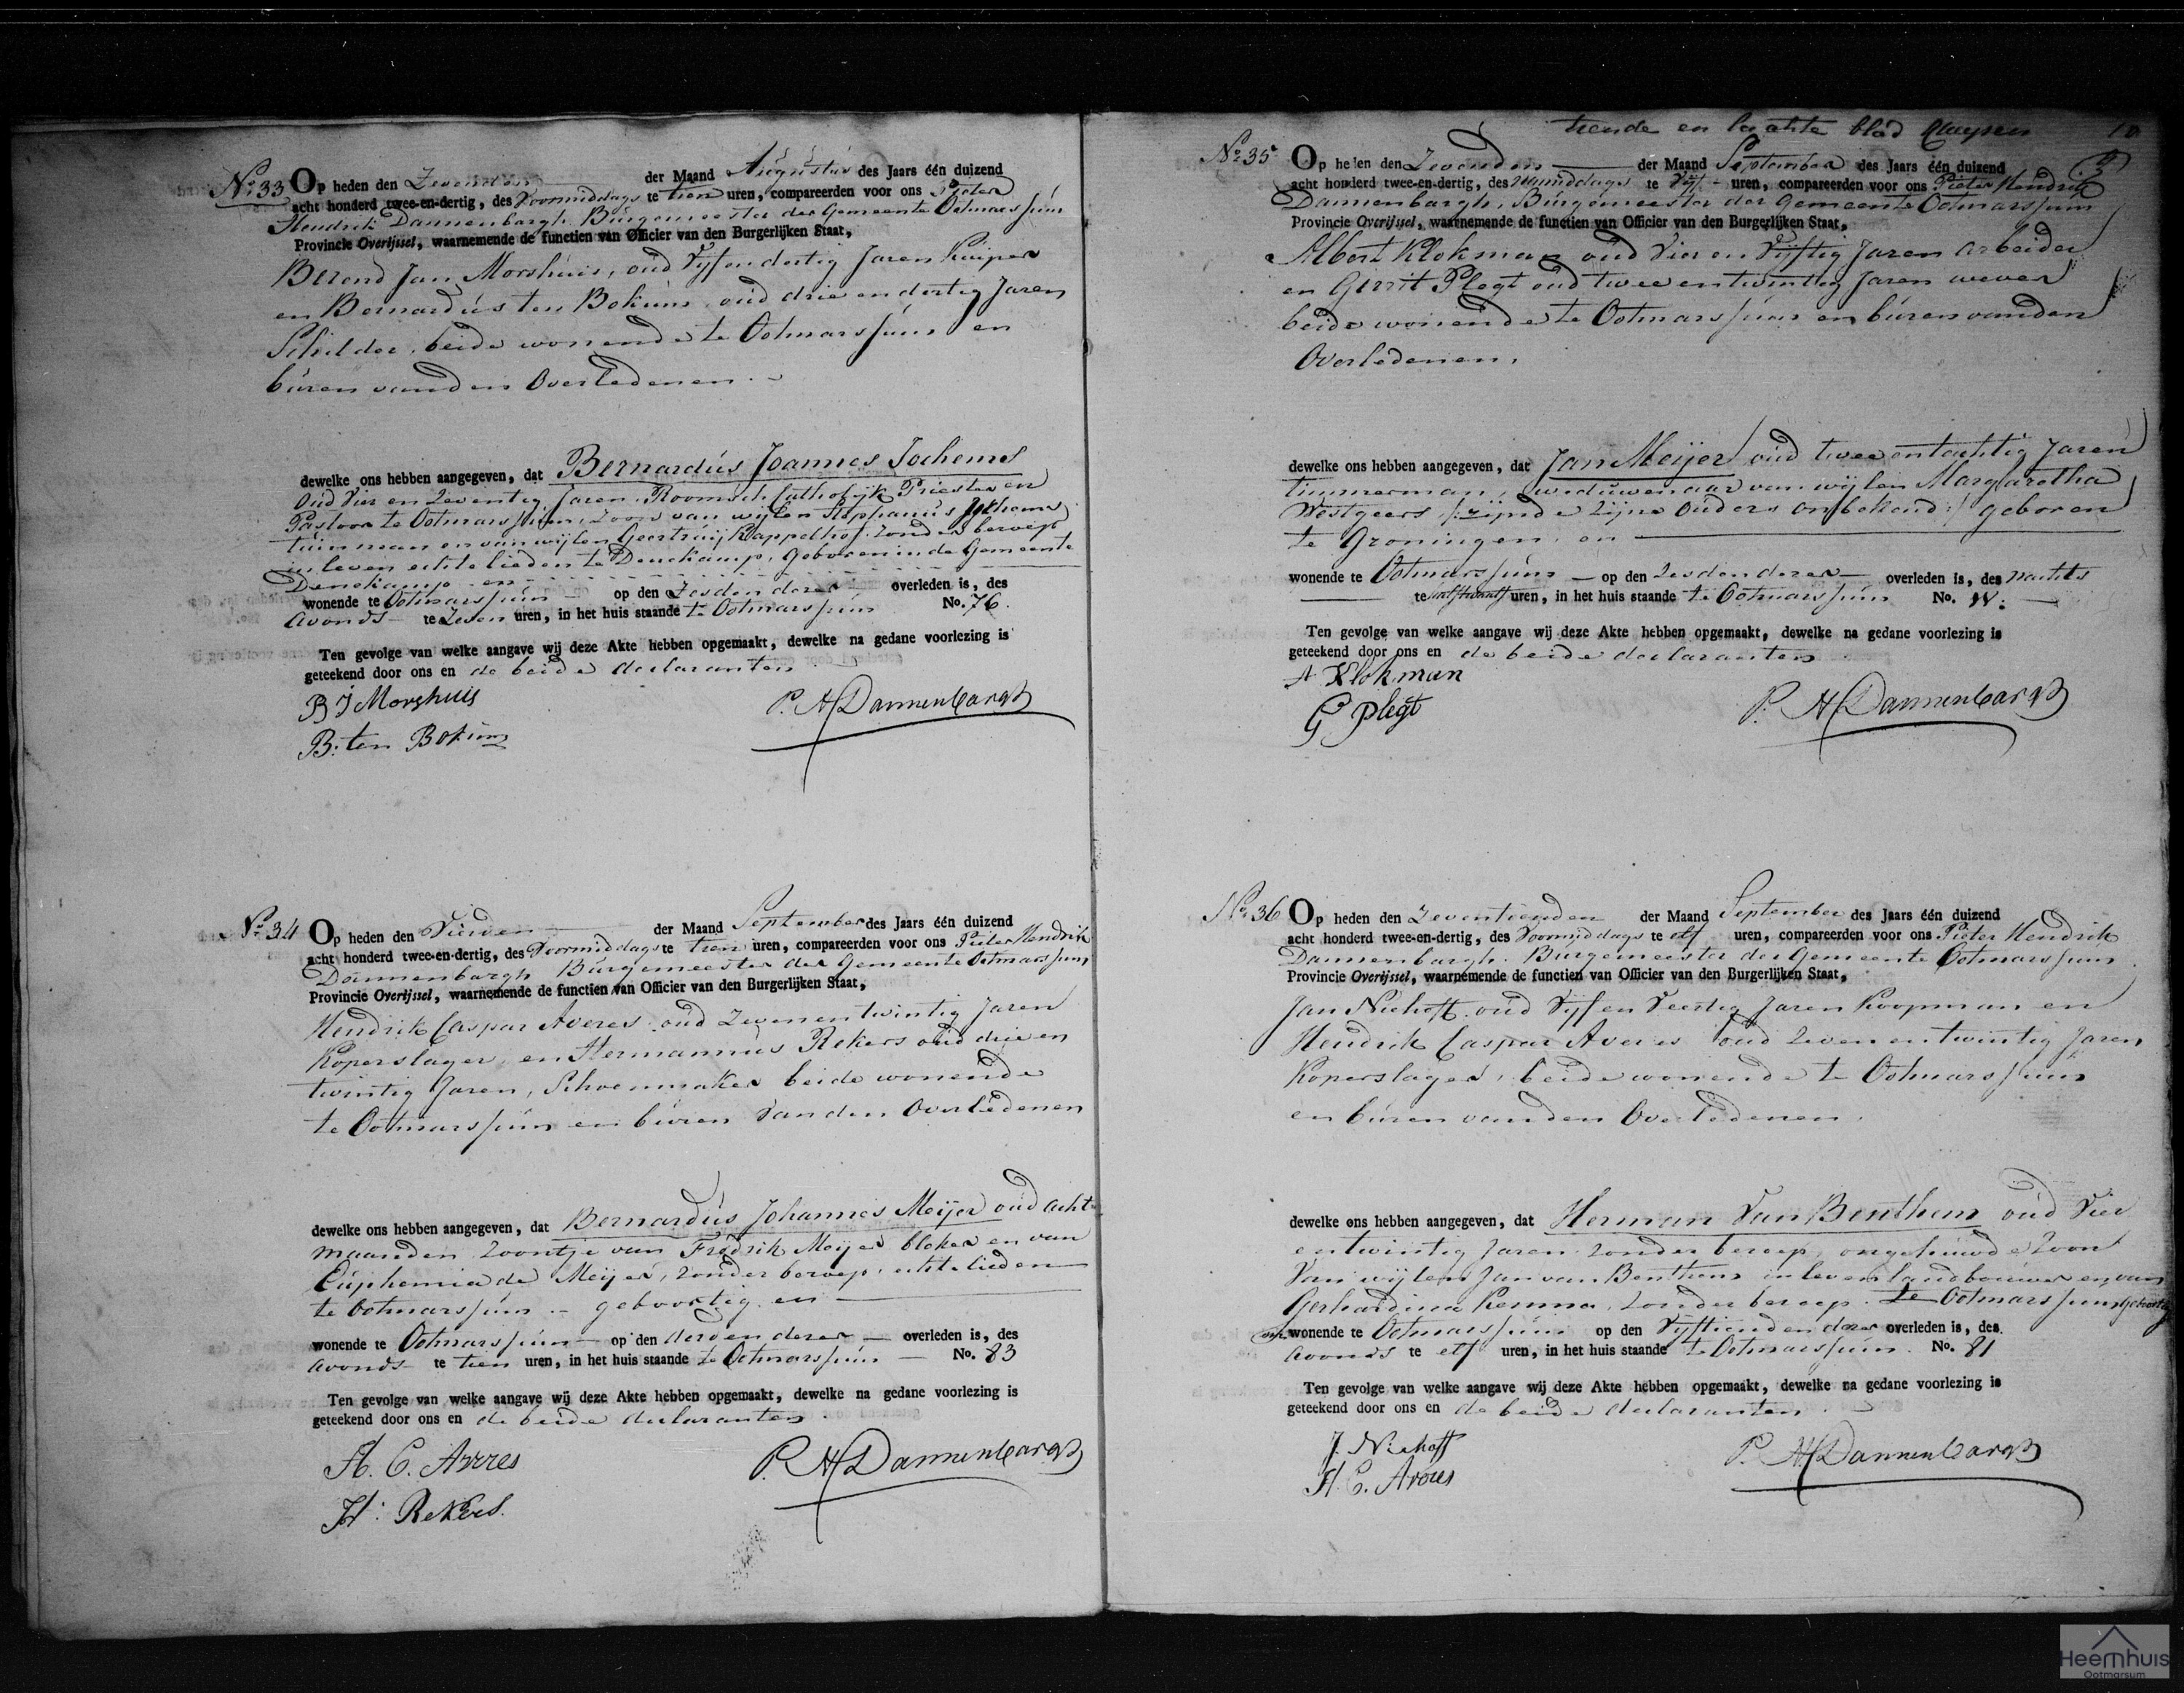 No. 33 Op heden den Zevenden der Maand Augustus des Jaars één duizend
acht honderd twee-en-dertig, des Voormiddags te tien uren, compareerden voor ons Pieter
Hendrik Dannenbargh Burgemeester der Gemeente Ootmarssum
Provincie Overijssel, waarnemende de functien van Officier van den Burgerlijken Staat,
Berend Jan Morshuis, oud Vijf en dertig Jaren Kuiper
en Bernardus ten Bokum oud drie en dertig Jaren
Schilder, beide wonende te Ootmarssum en
buren van den Overledenen.
dewelke ons hebben aangegeven, dat Bernardus Joannes Jochems
Oud Vier en Zeventig Jaren, Roomsch Catholijk Priester en
Pastoor te Ootmarssum, Zoon van wijlen Stephanus Jochems
tuinman en van wijlen Geertruij Kappelhof zonder beroep
in leven echtelieden te Denekamp, Geboren in de Gemeente
Denekamp en
wonende te Ootmarssum op den Zesden dezer overleden is, des
avonds te Zeven uren, in het huis staande te Ootmarssum No. 76.
Ten gevolge van welke aangave wij deze Akte hebben opgemaakt, dewelke na gedane voorlezing is
geteekend door ons en de beide declaranten
B J Morshuis
P. H Dannenbargh
B: ten Bokum
No. 34 Op heden den Vierden der Maand September des Jaars één duizend
acht honderd twee-en-dertig, des Voormiddags te tien uren, compareerden voor ons Pieter Hendrik
Dannenbargh Burgemeester der Gemeente Ootmarssum
Provincie Overijssel, waarnemende de functien van Officier van den Burgerlijken Staat,
Hendrik Caspar Averes oud Zevenentwintig Jaren
Koperslager, en Hermannus Rekers oud drie en
twintig Jaren, Schoenmaker beide wonende
te Ootmarssum en buren Van den Overledenen
dewelke ons hebben aangegeven, dat Bernardus Johannes Meijer oud acht
maanden Zoontje van Fredrik Meijer bleker en van
Euphemia de Meijer, zonder beroep, echtelieden
te Ootmarssum geboortig en
wonende te Ootmarssum op den derden dezer overleden is, des
avonds te tien uren, in het huis staande te Ootmarssum No. 83
Ten gevolge van welke aangave wij deze Akte hebben opgemaakt, dewelke na gedane voorlezing is
geteekend door ons en de beide declaranten.
H. C. Averes
P. H Dannenbargh
H: Rekers.
tiende en laatste blad
10
No. 35 Op heden den Zevenden der Maand September des Jaars één duizend
acht honderd twee-en-dertig, des namiddags te Vijf uren, compareerden voor ons Pieter Hendrik
Dannenbargh, Burgemeester der Gemeente Ootmarssum
Provincie Overijssel, waarnemende de functien van Officier van den Burgerlijken Staat,
Albert Klokman oud Vier en Vijftig Jaren arbeider
en Gerrit Plegt oud twee en twintig Jaren wever
beide wonende te Ootmarssum en buren van den
Overledenen.
dewelke ons hebben aangegeven, dat Jan Meijer oud twee en tachtig Jaren
timmerman, weduwenaar van wijlen Margaretha
Westgeers /:zijnde zijne Ouders onbekend:/ geboren
te Groningen, en
wonende te Ootmarssum op den Zesden dezer overleden is, des nachts
te uren, in het huis staande te Ootmarssum No.
Ten gevolge van welke aangave wij deze Akte hebben opgemaakt, dewelke na gedane voorlezing is
geteekend door ons en de beide declaranten
A Klokman
G Plegt
P. H Dannenbargh
No. 36 Op heden den Zeventienden der Maand September des Jaars één duizend
acht honderd twee-en-dertig, des Voormiddags te elf uren, compareerden voor ons Pieter Hendrik
Dannenbargh. Burgemeester der Gemeente Ootmarssum
Provincie Overijssel, waarnemende de functien van Officier van den Burgerlijken Staat,
Jan Niehoff oud Vijf en Veertig Jaren Koopman en
Hendrik Caspar Averes oud Zeven en twintig Jaren
Koperslager, beide wonende te Ootmarssum
en buren van den Overledenen.
dewelke ons hebben aangegeven, dat Herman Van Benthem oud Vier
en twintig Jaren zonder beroep, ongehuwde Zoon
Van wijlen Jan van Benthem in leven landbouwer en van
Gerhardina Kemna, zonder beroep. te Ootmarssum geboortig
en wonende te Ootmarssum op den Vijftienden dezer overleden is, des
avonds te elf uren, in het huis staande te Ootmarssum. No. 81
Ten gevolge van welke aangave wij deze Akte hebben opgemaakt, dewelke na gedane voorlezing is
geteekend door ons en de beide declaranten.
J. Niehoff
H. C. Averes
P. H Dannenbargh
Heemhuis
Ootmarsum